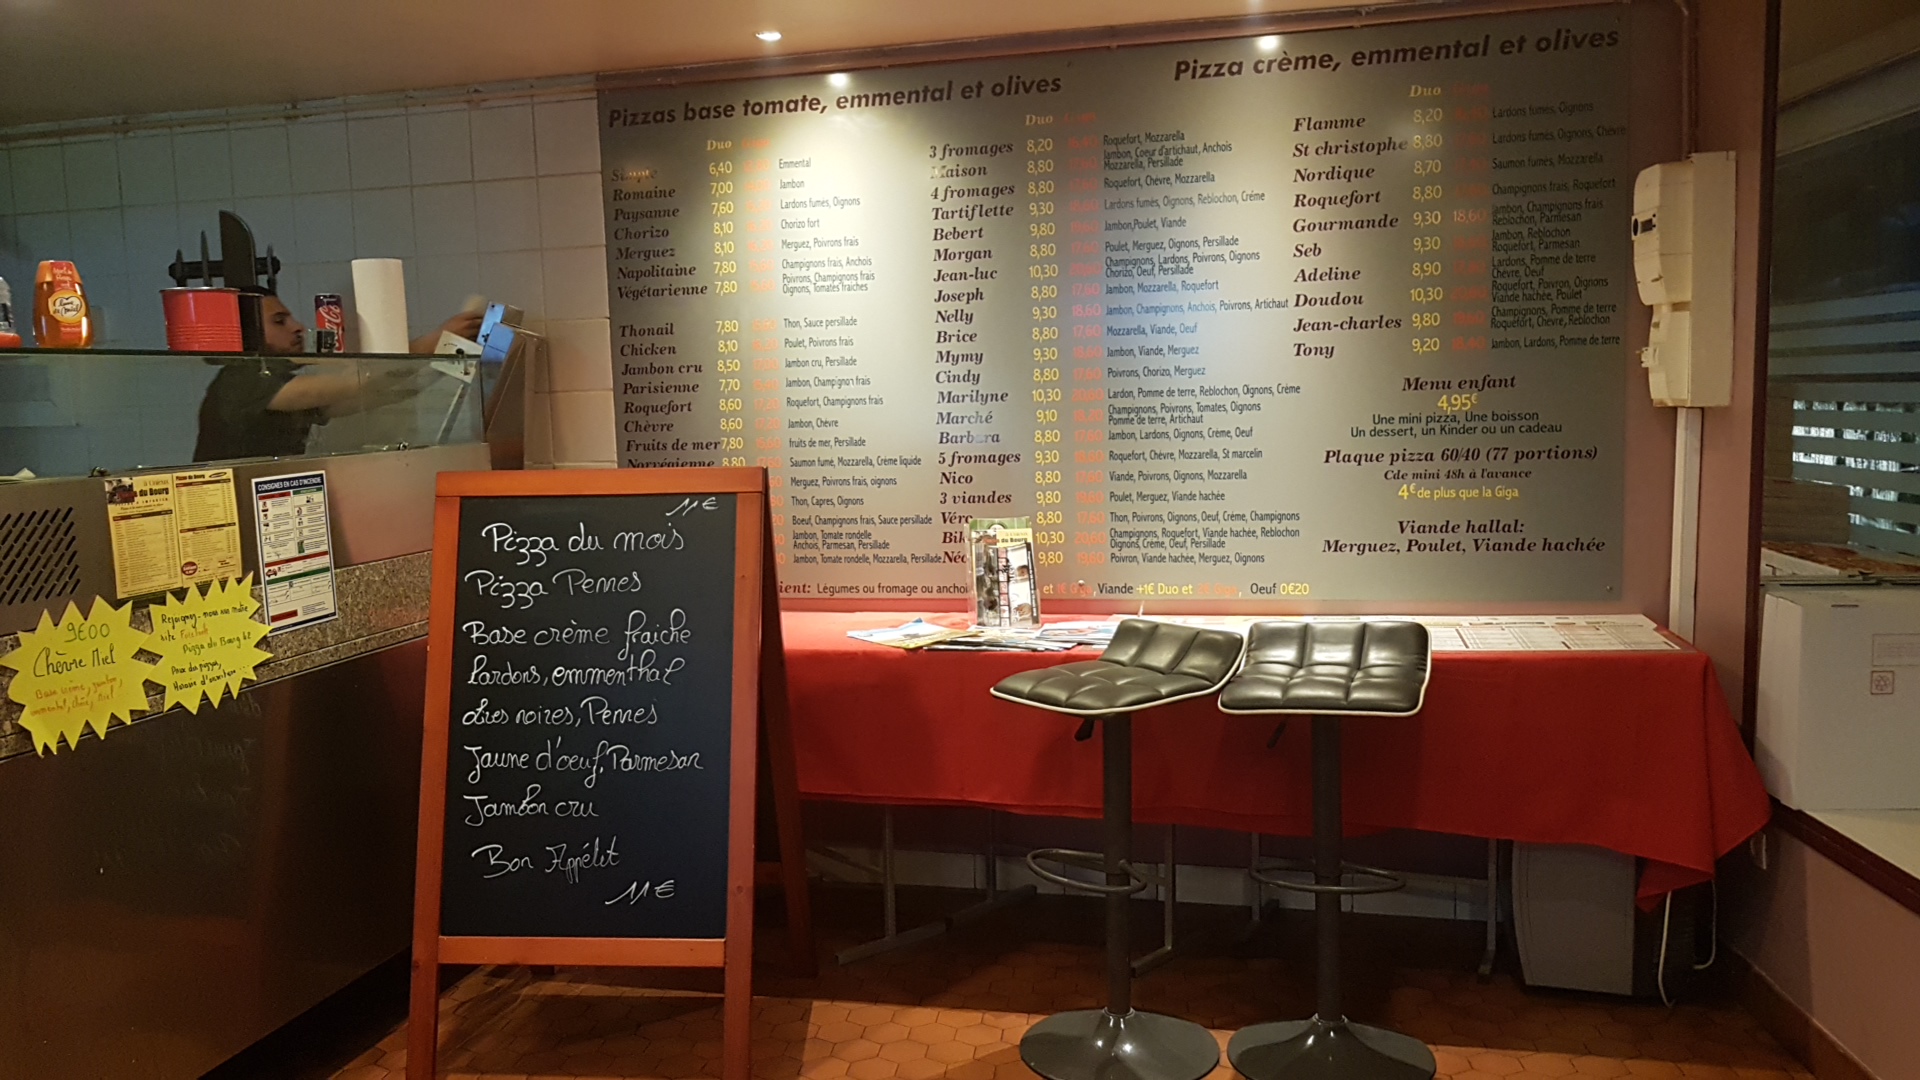 Pizzas base tomate, emmental et olives
Duo
6,40 Emmental
Romaine 7,00 Jambon
Paysanne 7,60 Lardons fumés, Oignons
Chorizo 8,10 Chorizo fort
Merguez 8,10 Merguez, Poivrons frais
Napolitaine 7,80 Champignons frais, Anchois
Végétarienne 7,80 Poivrons, Champignons frais
Oignons, Tomates fraiches
Thonail 7,80 Thon, Sauce persillade
Chicken 8,10 Poulet, Poivrons frais
Jambon cru 8,50 Jambon cru, Persillade
Parisienne 7,70 Jambon, Champignon frais
Roquefort 8,60 Roquefort, Champignons frais
Chèvre 8,60 Jambon, Chèvre
Fruits de mer 7,80 fruits de mer, Persillade
Norvégienne 8,80 Saumon fumé, Mozzarella, Crème liquide
Merguez, Poivrons frais, oignons
Thon, Capres, Oignons
Boeuf, Champignons frais, Sauce persillade
Jambon, Tomate rondelle
Anchois, Parmesan, Persillade
Jambon, Tomate rondelle, Mozzarella, Persillade
Duo
3 fromages 8,20 Roquefort, Mozzarella
Maison 8,80 Jambon, Coeur d'artichaut, Anchois
Mozzarella, Persillade
4 fromages 8,80 Roquefort, Chèvre, Mozzarella
Tartiflette 9,30 Lardons fumés, Oignons, Reblochon, Crème
Bebert 9,80 Jambon,Poulet, Viande
Morgan 8,80 Poulet, Merguez, Oignons, Persillade
Jean-luc 10,30 Champignons, Lardons, Poivrons, Oignons
Chorizo, Oeuf, Persillade
Joseph 8,80 17,60 Jambon, Mozzarella, Roquefort
Nelly 9,30 18,60 Jambon, Champignons, Anchois, Poivrons, Artichaut
Brice 8,80 17,60 Mozzarella, Viande, Oeuf
Mymy 9,30 18,60 Jambon, Viande, Merguez
Cindy 8,80 17,60 Poivrons, Chorizo, Merguez
Marilyne 10,30 20,60 Lardon, Pomme de terre, Reblochon, Oignons, Crème
Marché 9,10 18,20 Champignons, Poivrons, Tomates, Oignons
Pomme de terre, Artichaut
Barbara 8,80 17,60 Jambon, Lardons, Oignons, Crème, Oeuf
5 fromages 9,30 18,60 Roquefort, Chèvre, Mozzarella, St marcelin
Nico 8,80 17,60 Viande, Poivrons, Oignons, Mozzarella
3 viandes 9,80 19,60 Poulet, Merguez, Viande hachée
8,80 17,60 Thon, Poivrons, Oignons, Oeuf, Crème, Champignons
10,30 20,60 Champignons, Roquefort, Viande hachée, Reblochon
Oignons, Crème, Oeuf, Persillade
9,80 19,60 Poivron, Viande hachée, Merguez, Oignons
Légumes ou fromage ou anchoi et 1€ Giga, Viande +1€ Duo et 2€ Giga, Oeuf 0€20
Pizza crème, emmental et olives
Duo
Flamme 8,20 Lardons fumés, Oignons
St christophe 8,80 Lardons fumés, Oignons, Chèvre
Nordique 8,70 Saumon fumés, Mozzarella
Roquefort 8,80 Champignons frais, Roquefort
Gourmande 9,30 18,60 Jambon, Champignons frais
Reblochon, Parmesan
Seb 9,30 Jambon, Reblochon
Roquefort, Parmesan
Adeline 8,90 Lardons, Pomme de terre
Chèvre, Oeuf
Doudou 10,30 Roquefort, Poivron, Oignons
Viande hachée, Poulet
Jean-charles 9,80 Champignons, Pomme de terre
Roquefort, Chèvre, Reblochon
Tony 9,20 18,40 Jambon, Lardons, Pomme de terre
Menu enfant
4,95€
Une mini pizza, Une boisson
Un dessert, un Kinder ou un cadeau
Plaque pizza 60/40 (77 portions)
Cde mini 48h à l'avance
4€ de plus que la Giga
Viande hallal:
Merguez, Poulet, Viande hachée
11€
Pizza du mois
Pizza Pennes
Base crème fraiche
lardons, emmenthal
olives noires, Pennes
Jaune d'œuf, Parmesan
Jambon cru
Bon Appétit
11€
9€00
Chèvre Miel
Base crème, jambon,
emmental, chèvre, Miel
Rejoignez-nous sur notre
site Facebook
Pizza du Bourg
CONSIGNES EN CAS D'INCENDIE
du Bourg